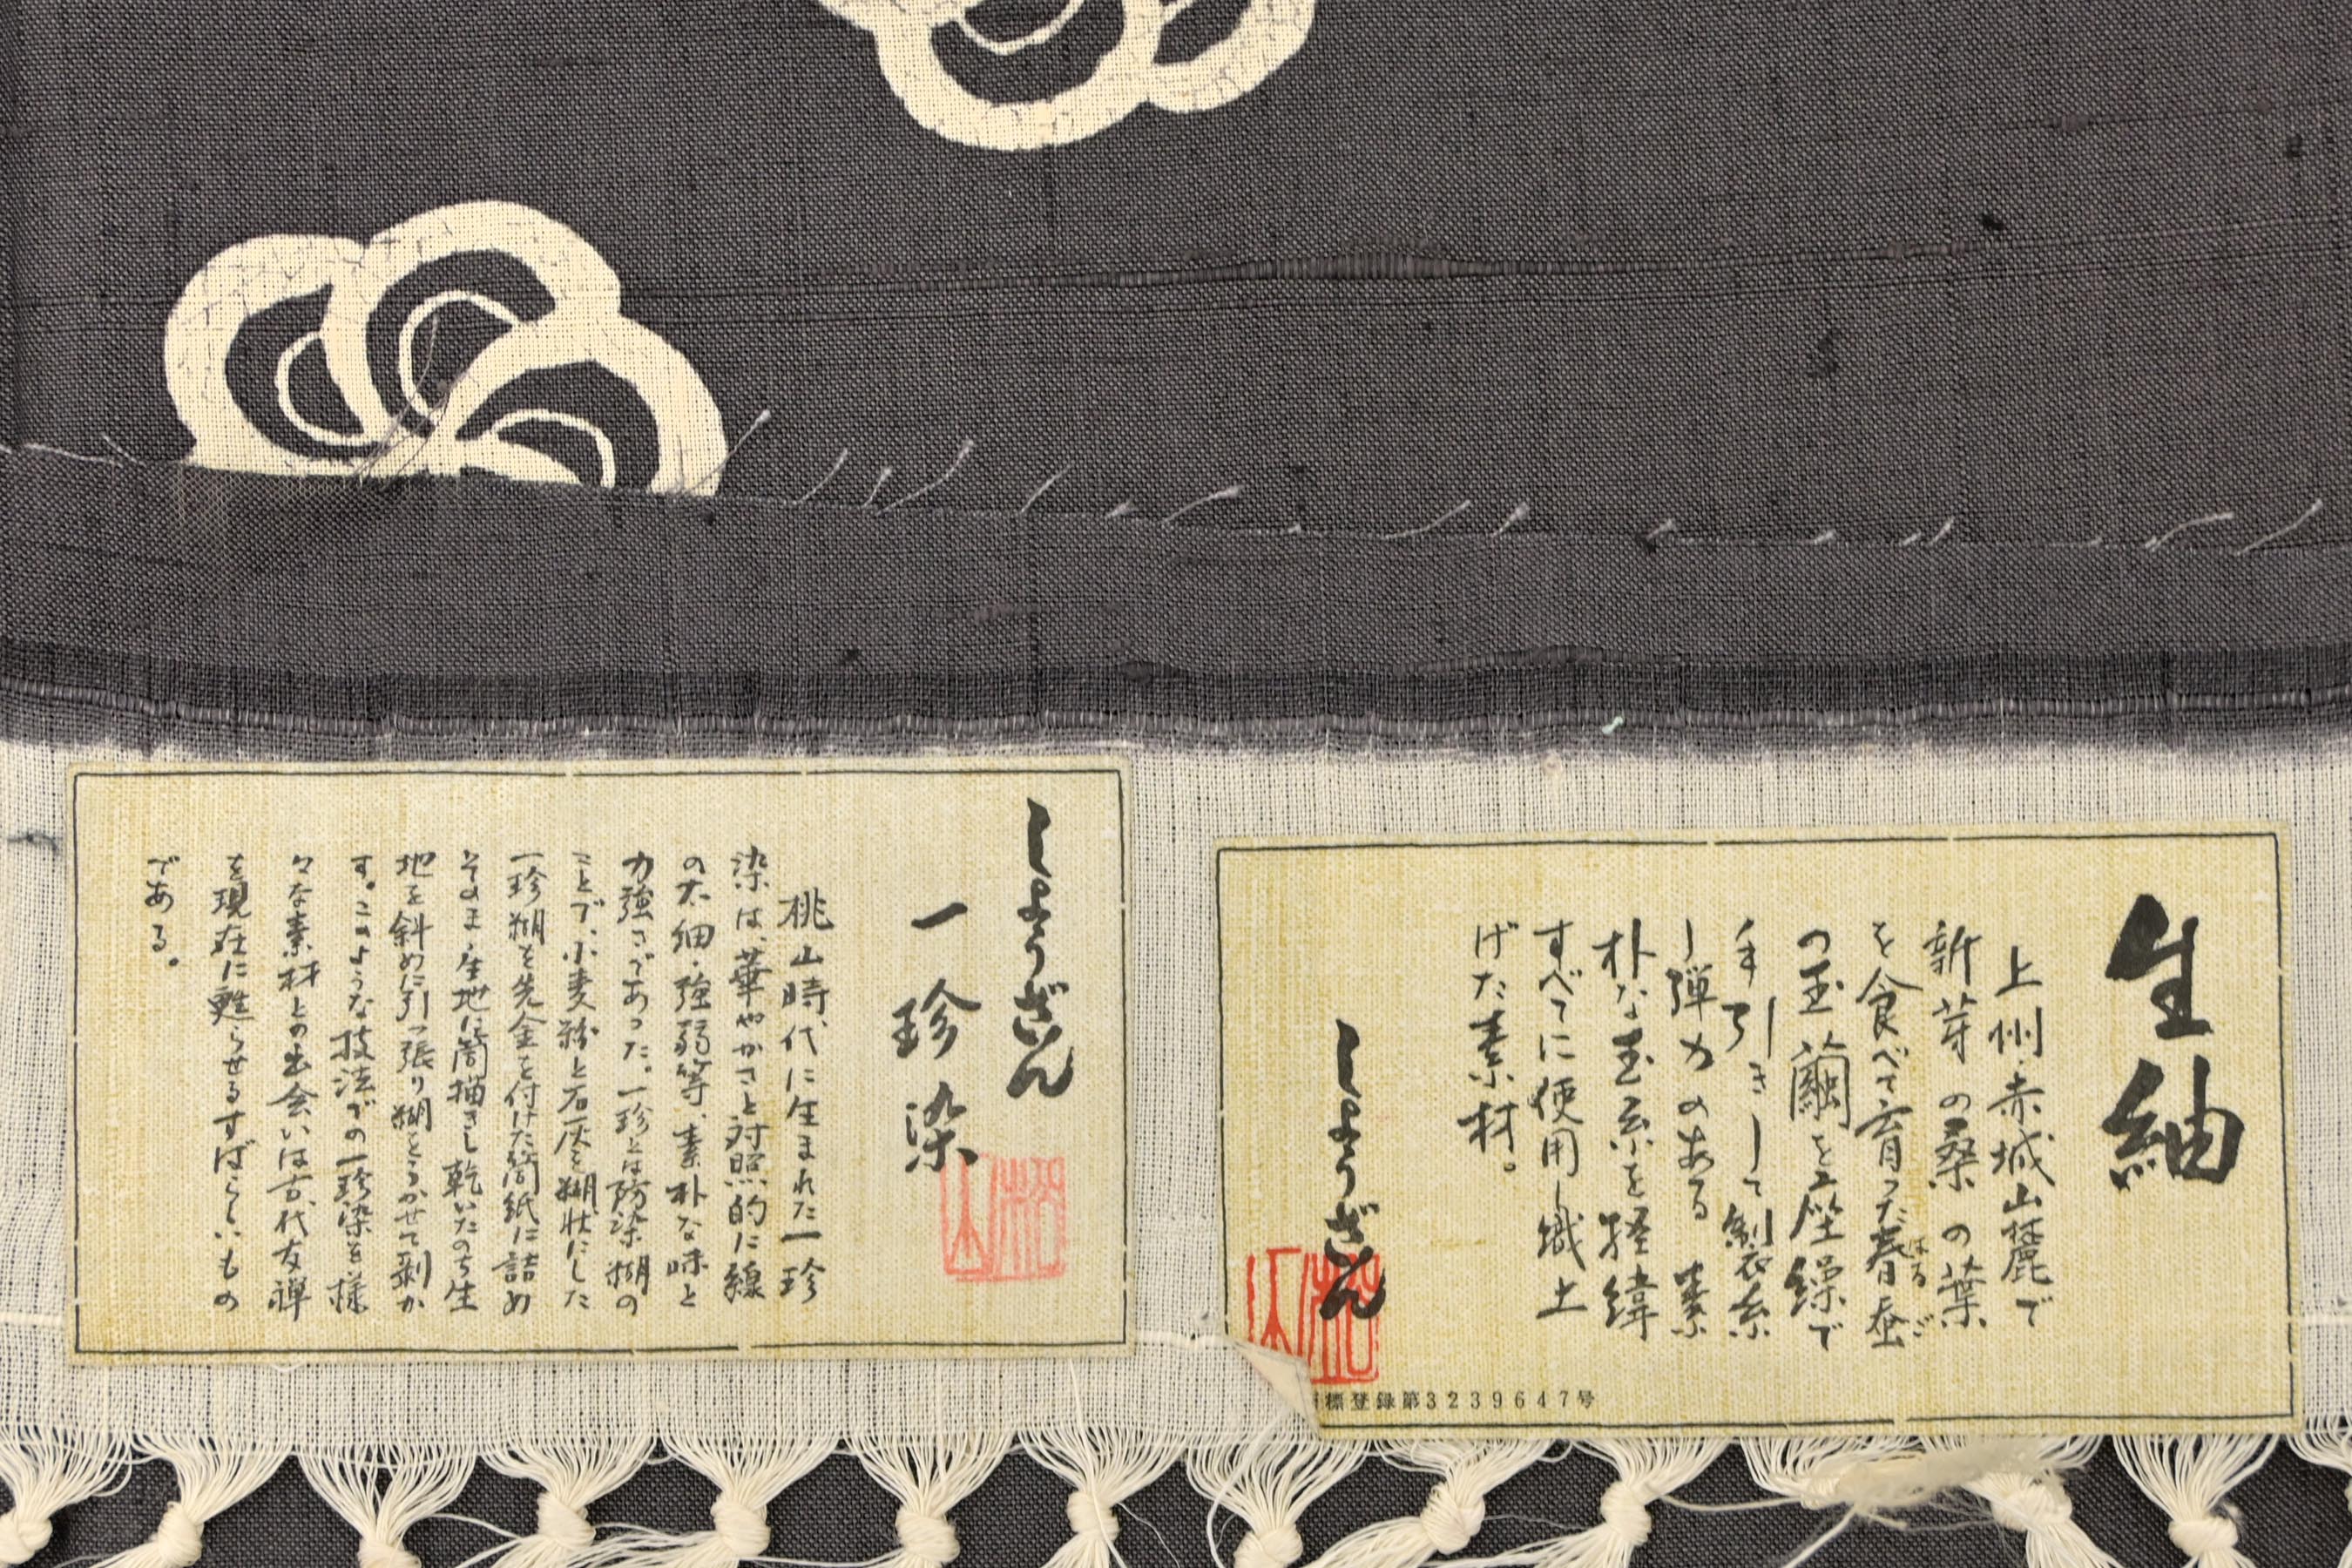 生紬
上州・赤城山麓で
新芽の桑の葉
を食べて育った春蚕
はるご
の玉繭を座繰で
手引きして製糸
し弾力のある素
朴な玉糸を経緯
すべてに使用し織上
げた素材。
しょうざん
標登録第3239647号
しょうざん
一珍染
桃山時代に生まれた一珍
染は、華やかさと対照的に線
の太細・強弱等、素朴な味と
力強さであった。一珍とは防染糊の
ことで、小麦粉と石灰を糊状にした
一珍糊を先金を付けた筒紙に詰め
そのまま生地に筒描きし乾いたのち生
地を斜めに引っ張り糊をうかせて剥が
す。このような技法での一珍染を様
々な素材との出会いは古代友禅
を現在に甦らせるすばらしいもの
である。